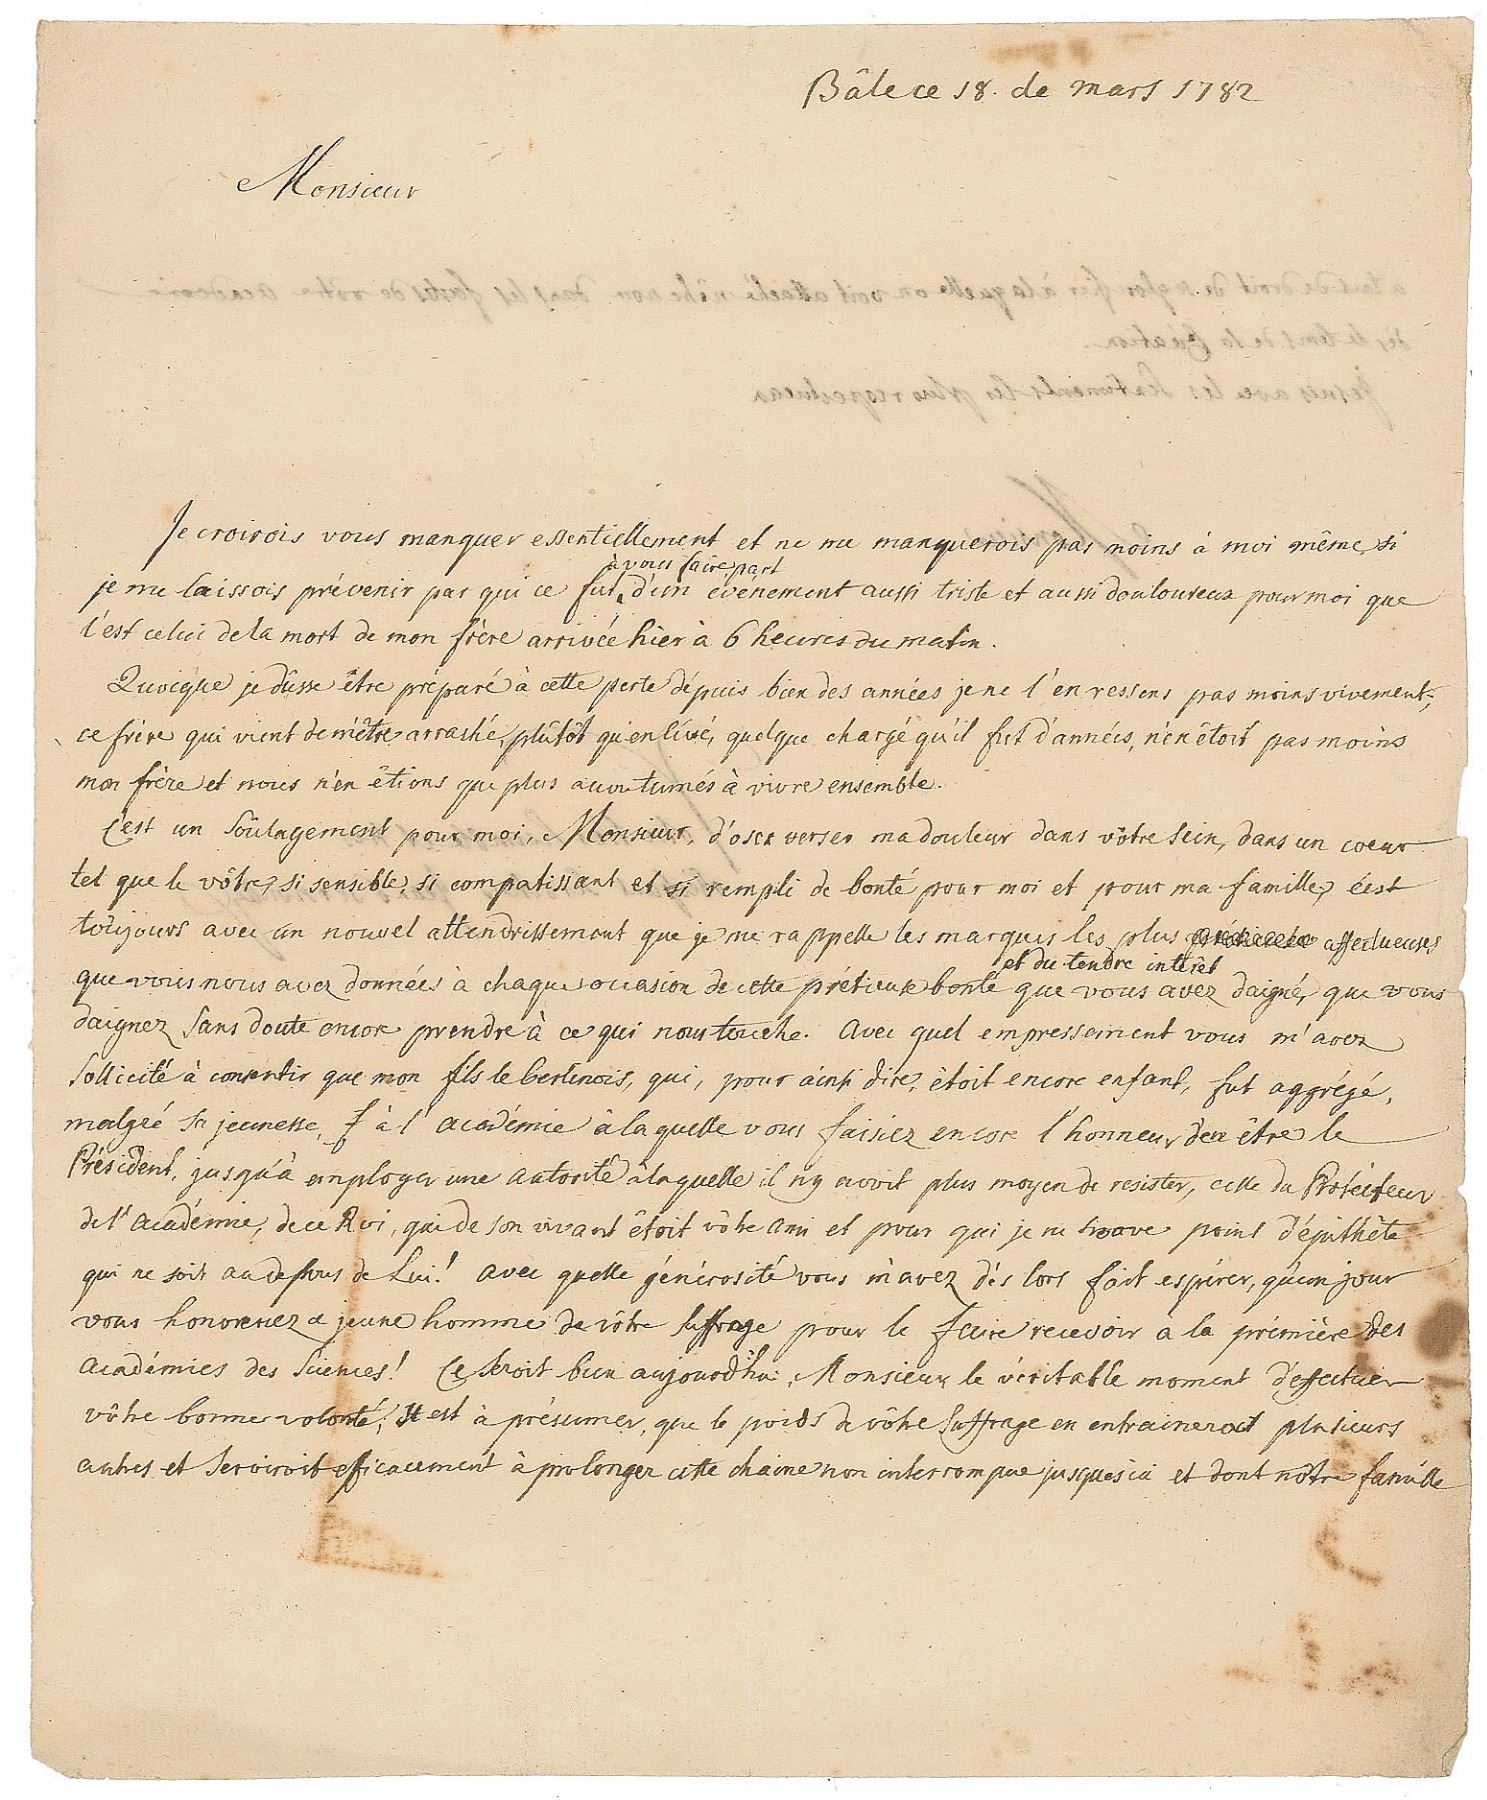 Bâle ce 18. de mars 1782
Monsieur
Je croirois vous manquer essentiellement et ne me manquerois pas moins à moi même, si
à vous faire part
je me laissois prévenir par qui ce fut d'un événement aussi triste et aussi douloureux pour moi que
l'est celui de la mort de mon frère arrivée hier à 6 heures du matin.
Quoique je dusse être préparé à cette perte dépuis bien des années je ne l'en ressens pas moins vivement,
ce frère qui vient de m'être arraché, plûtôt qu'enlevé, quelque chargé qu'il fut d'années, n'en êtoit pas moins
mon frère et nous n'en êtions que plus accoutumés à vivre ensemble.
C'est un soûlagement pour moi, Monsieur, d'oser verser ma douleur dans vôtre sein, dans un coeur
tel que le vôtre, si sensible, si compatissant et si rempli de bonté pour moi et pour ma famille, c'est
toûjours avec un nouvel attendrissement que je me rappelle les marques les plus affectueuses
et du tendre intérêt
que vous nous avez données à chaque occasion de cette prétieuse bonté que vous avez daigné, que vous
daignez sans doute encore prendre à ce qui nous touche. Avec quel empressement vous m'avez
sollicité à consentir que mon fils le berlinois, qui, pour ainsi dire, êtoit encore enfant, fut aggrégé,
malgré sa jeunesse, à l'académie à laquelle vous faisiez encore l'honneur d'en être le
Président, jusqu'à employer une autorité à laquelle il n'y avoit plus moyen de resister, celle du Protecteur
de l'académie, de ce Roi, qui de son vivant êtoit vôtre ami et pour qui je ne trouve point d'épithète
qui ne soit au dessous de Lui! avec quelle générosité vous m'avez dés lors fait espérer, qu'un jour
vous honoreriez ce jeune homme de vôtre suffrage pour le faire recevoir à la prémière des
académies des sciences! Ce seroit bien aujourd'hui, Monsieur, le véritable moment d'effectuer
vôtre bonne volonté; Il est à présumer, que le poids de vôtre suffrage en entraineroit plusieurs
autres et serviroit efficacement à prolonger cette chaine non interrompue jusques ici et dont nôtre famille